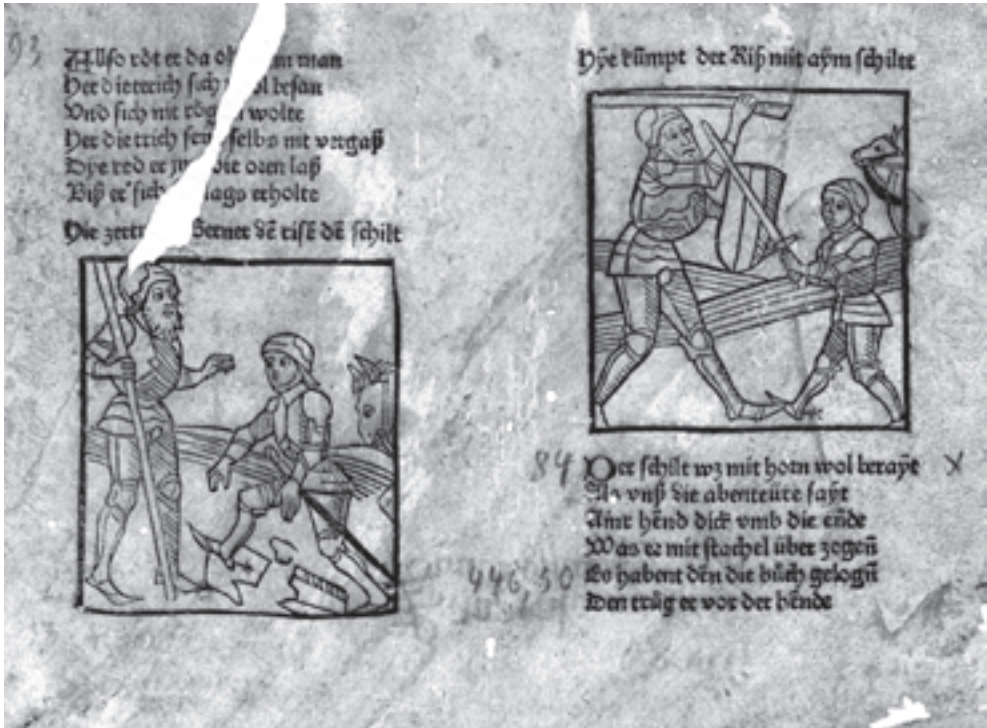 93
Allso rödt er da man
Her dietterich sich besan
Vnd sich nit wolte
Her dietrich selbs nit vergaß
Dye red er die oren laß
Biß er sich lags erholte
Hie Berner dē risē dē schilt
Hÿe kũmpt der Riß mit aÿm schilte
84 Der schilt wz mit horn wol beraÿt X
Alz vnß die abenteüre saÿt
hẽnd dick vmb die eñde
Was er mit stachel über zogeñ
446,50 Es habent dẽn die bůch gelogñ
Den trůg er vor der hẽnde